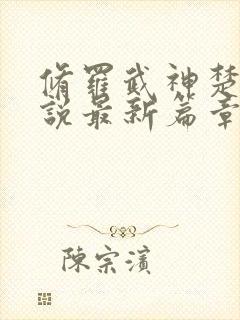 脩羅武神楚
說最新篇章
陳宗濱